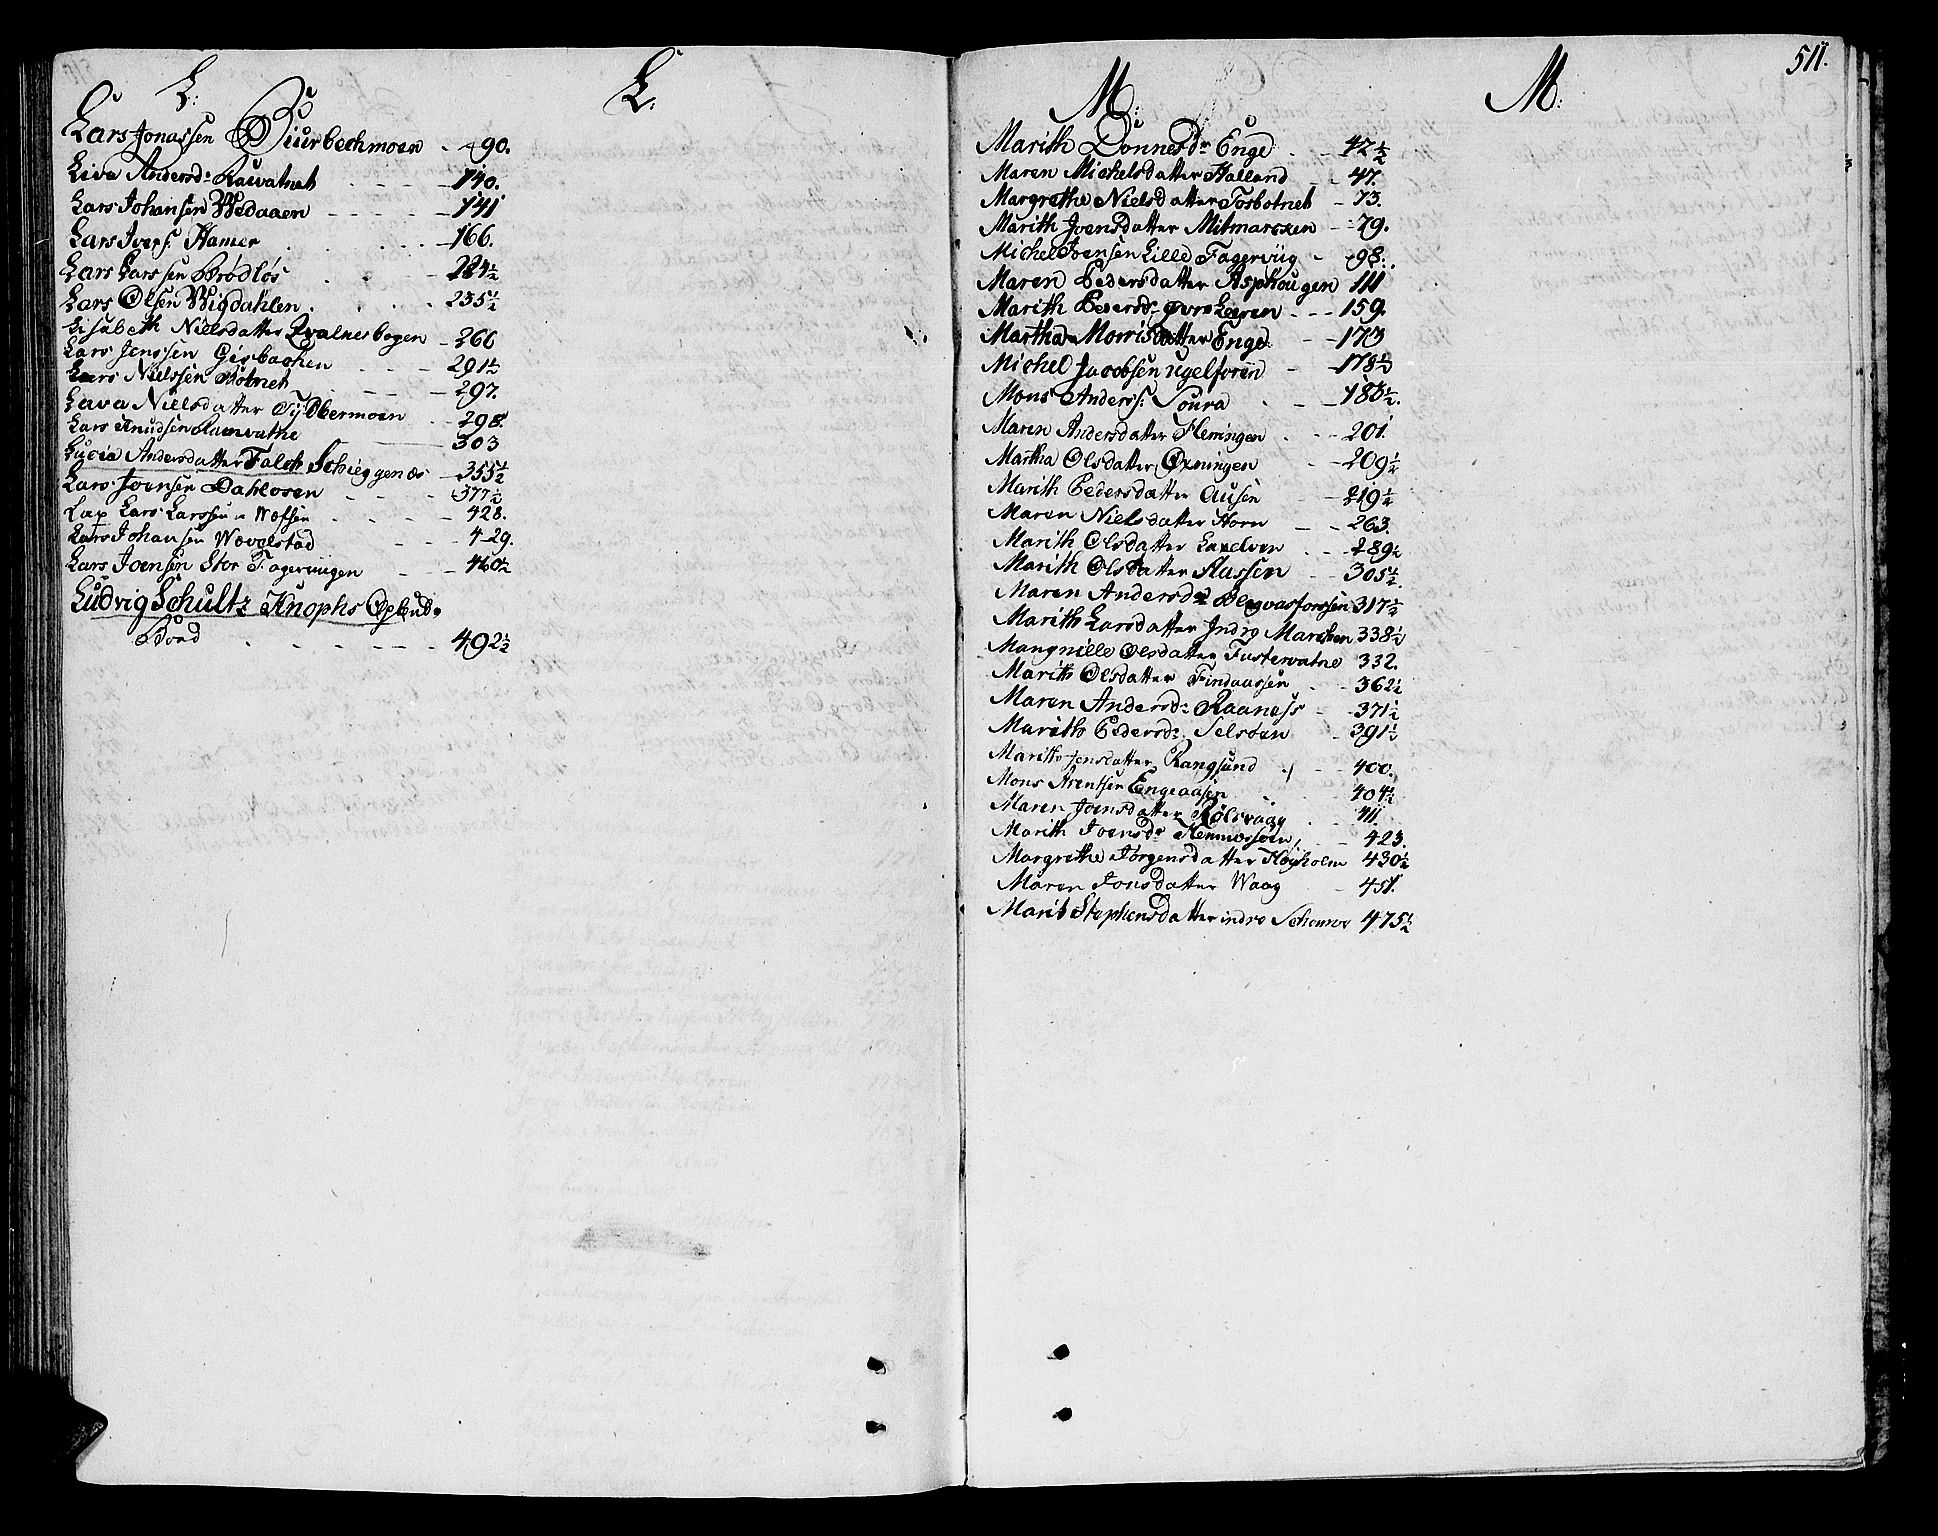 L: L:
Lars Jonassen Biurbechmoen 90.
Liva Andersdr Røevatnet 140.
Lars Johansen Wedaaen 141
Lars Ivers: Hamer 166.
Lars Larssen Brødløs 224½
Lars Olsen Wigdahlen 235½
Lisabeth Nielsdatter Qvalnesbogen 260
Lars Jenssen Giesbachen 291½
Lars Nielssen Botnet 297.
Lava Nielsdatter Obermoen 298.
Lars Knudsen 303
Lucia Andersdatter Falch Schieggenæs 355½
Lars Joensen Dahlosen 377½
Lap Lars Larssen Wefsen 428.
Lars Johansen Wevelstad 429.
Lars Joensen Stor Fagerviigen 460½
Ludvig Schultz Knophs Opbud:
Boed 492½
M: M: 511.
Marith Dønnesdr Enge 42½
Maren Michelsdatter Halland 47.
Margrethe Nielsdatter Tosbotnet 73.
Marith Joensdatter Mitmarxen 79.
Michel Joensen Lille Fagerviig 98.
Maren Pedersdatter Asphougen 111
Marith Pedersdr øvre Leeren 159.
Martha Morrisdatter Enge 173
Michel Jacobsen ugelforen 178½
Mons Anders: Soura 186½.
Maren Andersdatter Flemingen 201.
Martha Olsdatter Øxningen 209½
Marith Pedersdatter Ausen 219½
Maren Nielsdatter Horn 263.
Marith Olsdatter 289½
Marith Olsdatter Aassen 305½.
Maren Andersdr 317½
Marith Larsdatter Indre Marchen 338½
Mangnille Olsdatter Fustervatne 332.
Marith Olsdatter Findaassen 362½
Maren Andersdr Raaness 371½
Marith Pedersdr Selsøen 391½
Marith Jensdatter Rangsund 400.
Mons Arentsen Engeaasen 404½
Maren Joensdatter Rølsvaag 411.
Marith Joensdr Hemmessøen 423.
Margrethe Jørgensdatter Høyholm 430½
Maren Jonsdatter Waag 451.
Marit Stephensdatter indre 475½